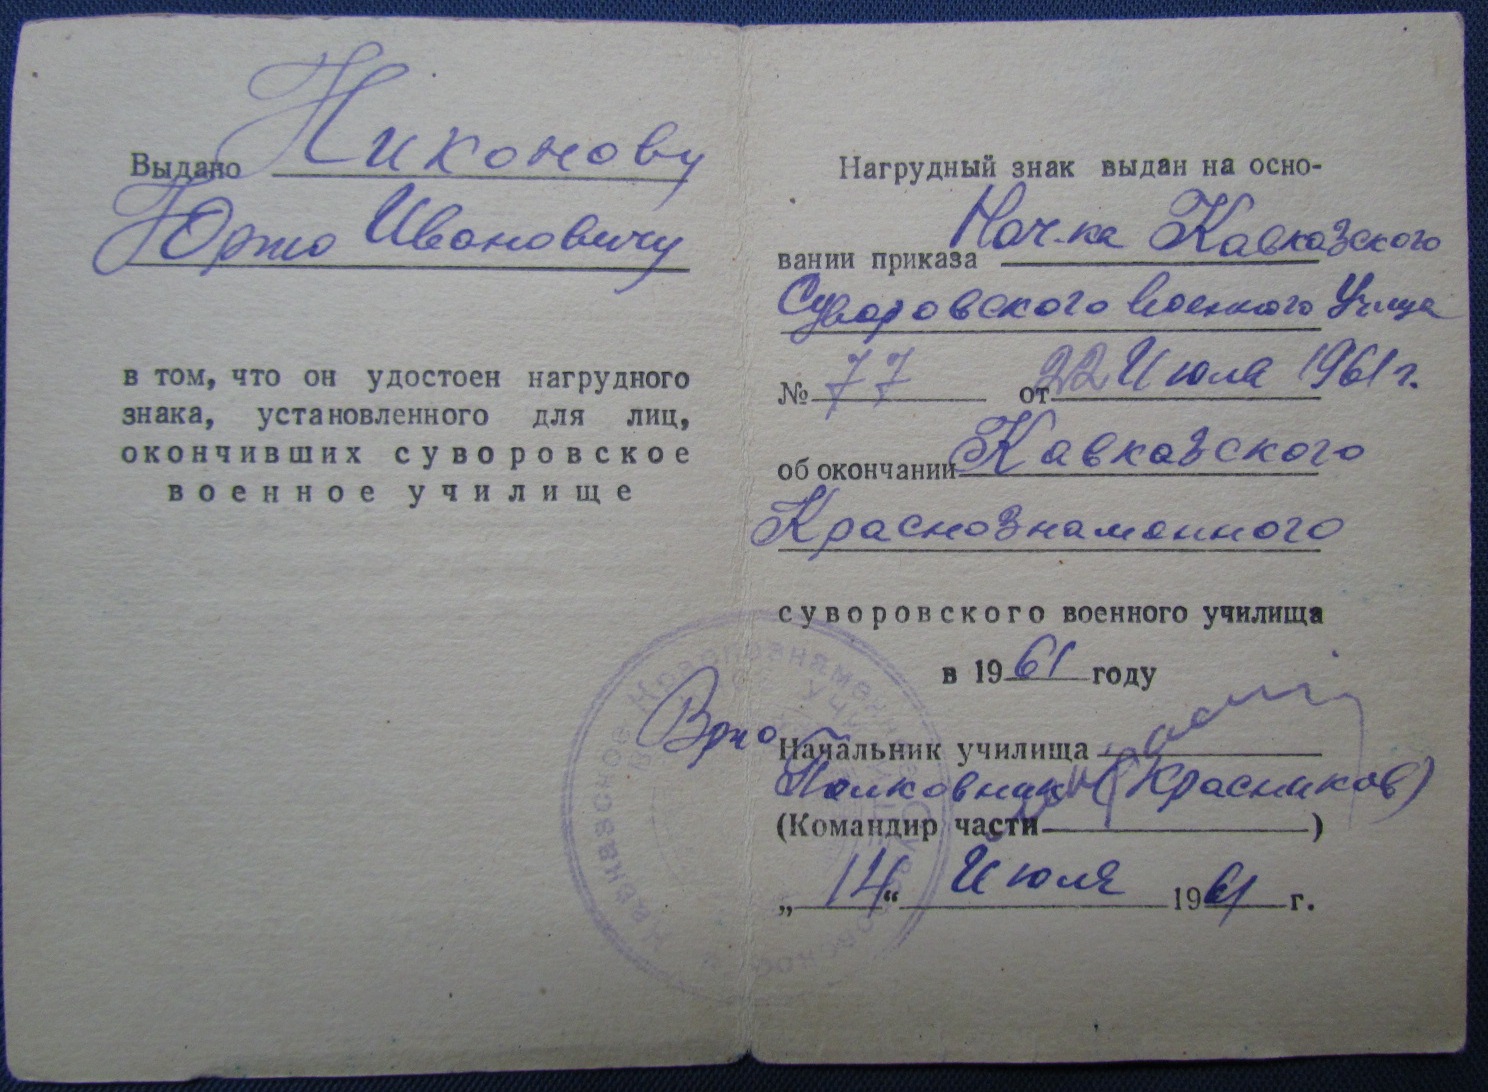 Выдано Никонову
Юрию Ивановичу
в том, что он удостоен нагрудного
знака, установленного для лиц,
окончивших суворовское
военное училище
Нагрудный знак выдан на осно-
вании приказа Нач-ка Кавказского
Суворовского Военного Учища
№ 77 от 22 Июля 1961 г.
об окончании Кавказского
Краснознаменного
суворовского военного училища
в 1961 году
Врио Начальник училища
Полковник (Красников)
(Командир части )
„14“ Июля 1961 г.
Кавказское Краснознаменное Суворовское
Военное Училище